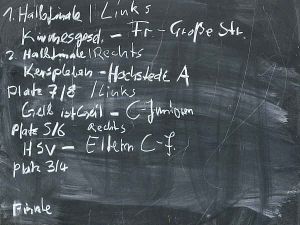 1. Halbfinale / Links
Kirmesgesd. - Fr - Große Str.
2. Halbfinale / Rechts
Kerspleben - Hochstedt A
Platz 7/8 / Links
Geil ist Geil - C-Junioren
Platz 5/6 Rechts
HSV - Eltern C-J.
Platz 3/4
Finale